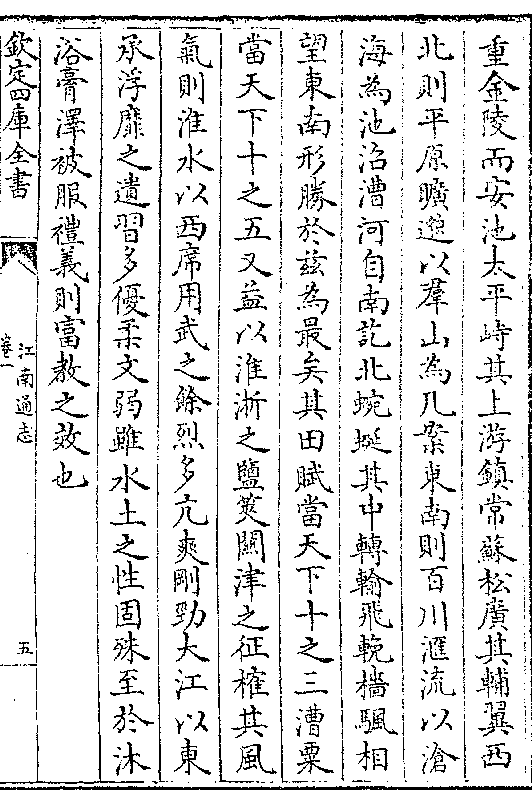 重金陵而安池太平峙其上游鎮常蘇松廣其輔翼西
北則平原曠邈以羣山為几案東南則百川滙流以滄
海為池沼漕河自南訖北蜿蜒其中轉輸飛輓檣颿相
望東南形勝於兹為最矣其田賦當天下十之三漕粟
當天下十之五又益以淮浙之鹽筴關津之征榷其風
氣則淮水以西席用武之餘烈多亢爽剛勁大江以東
承浮靡之遺習多優柔文弱雖水土之性固殊至於沐
浴膏澤被服禮義則富教之效也
欽定四庫全書
江南通志
卷一
五